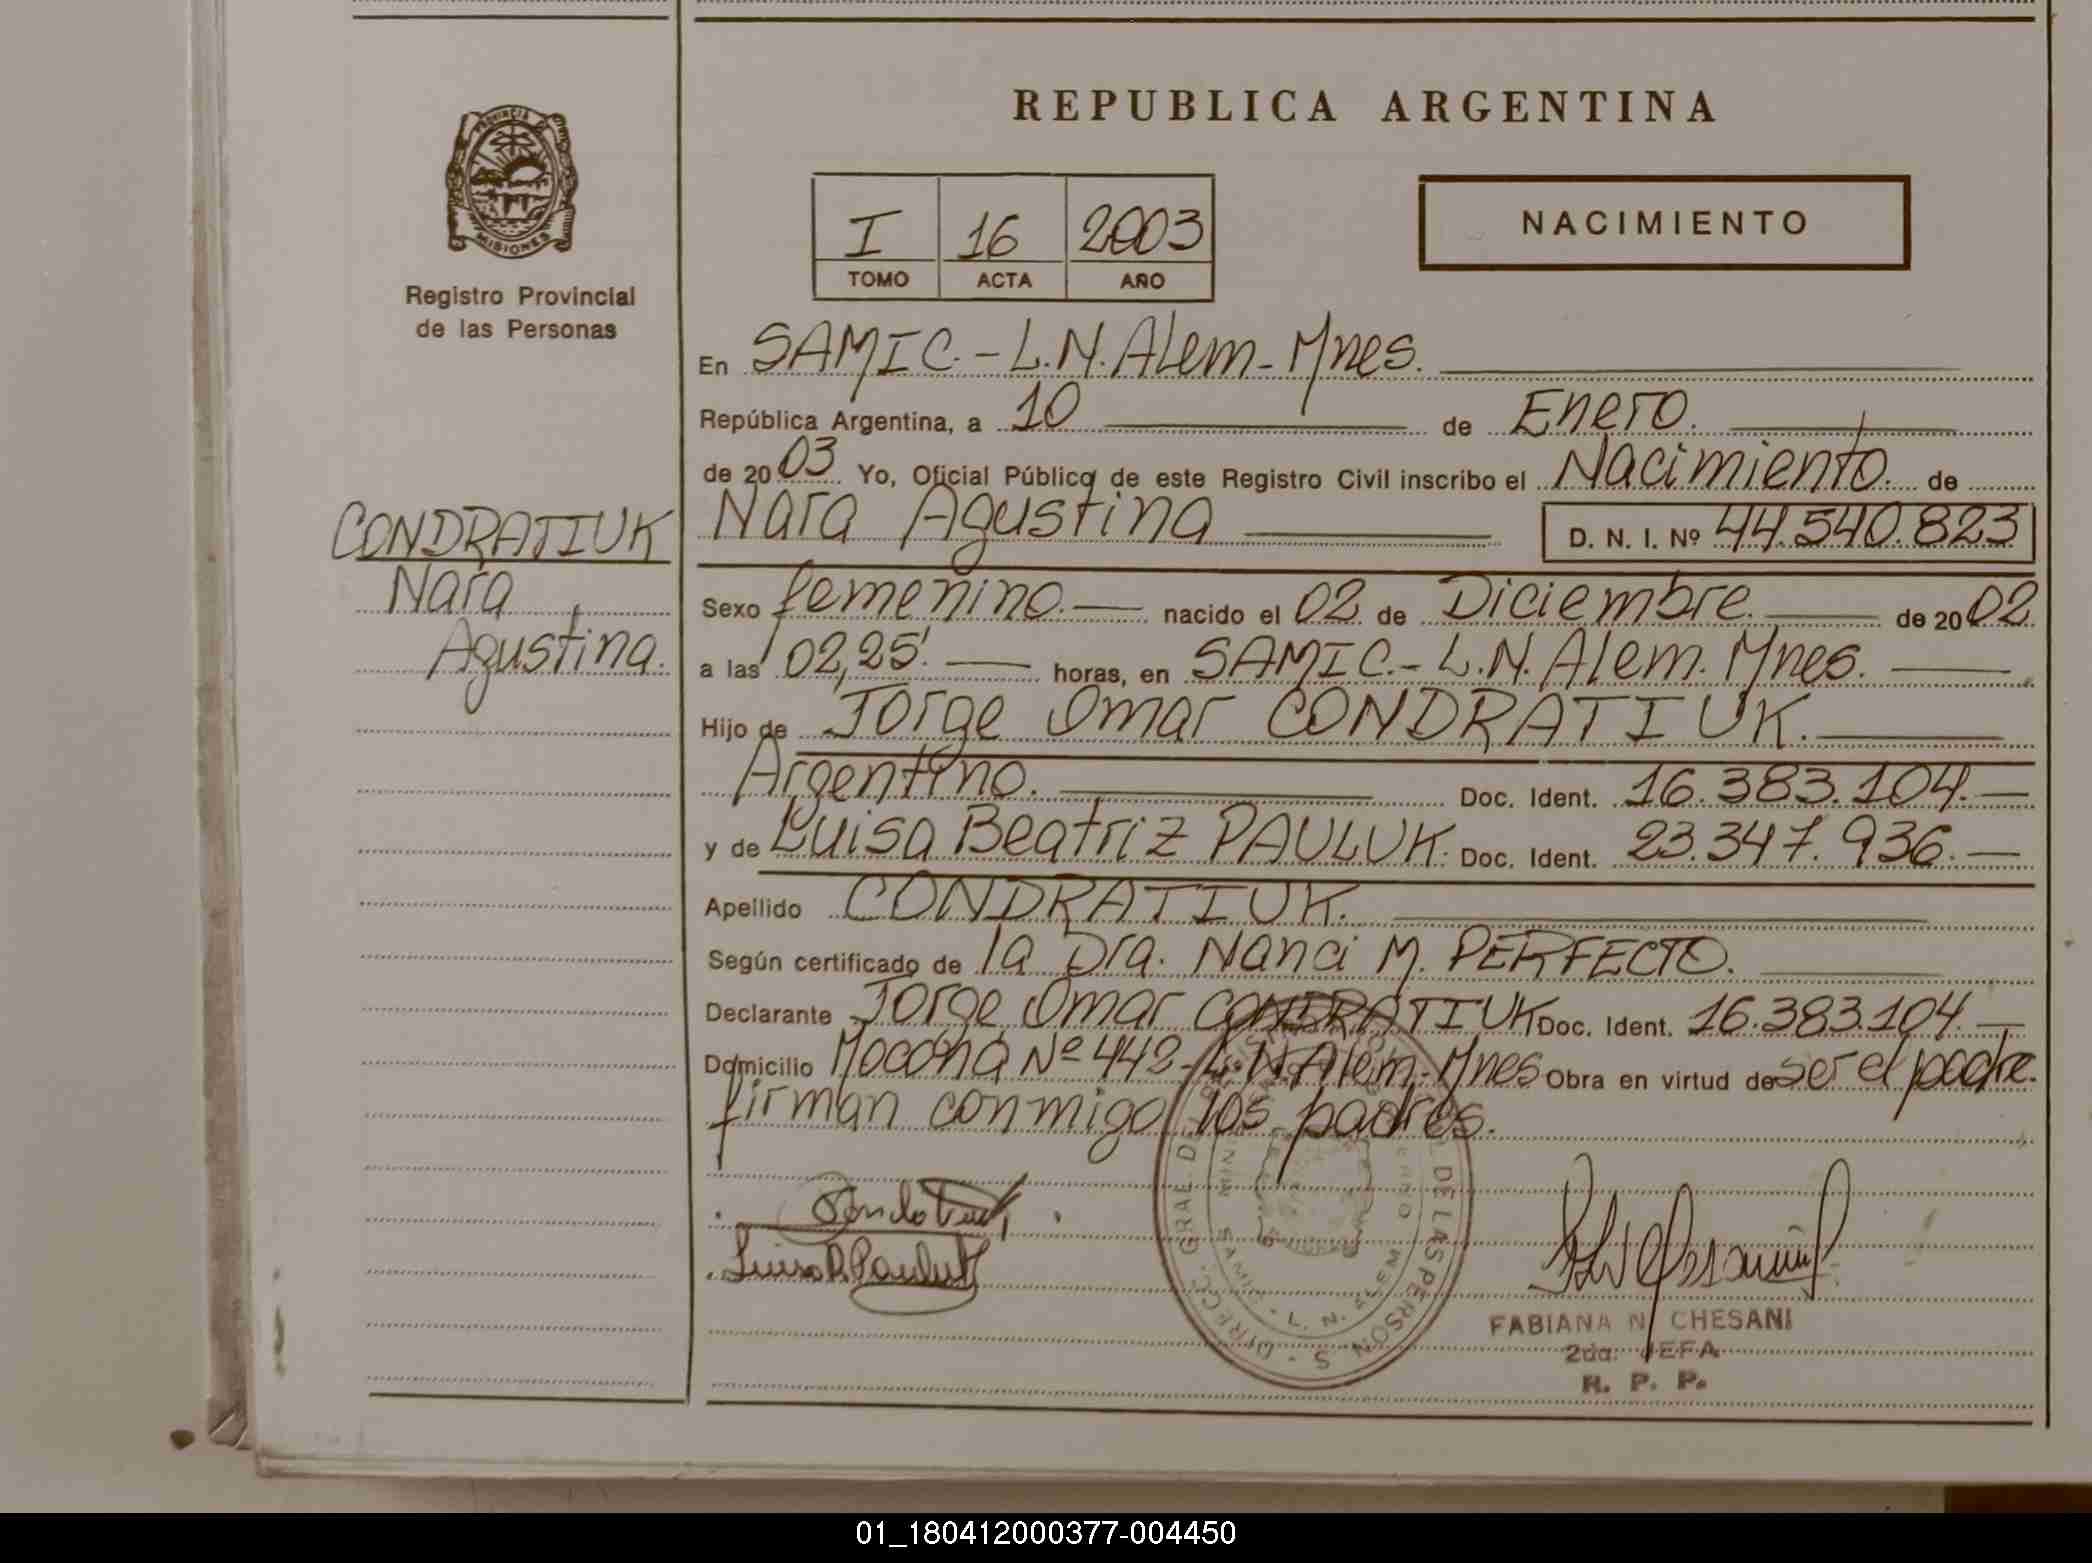 REPUBLICA ARGENTINA
PROVINCIA DE
MISIONES
Registro Provincial
de las Personas
I 16 2003
TOMO ACTA AÑO
NACIMIENTO
En SAMIC.- L.N. Alem- Mnes.
República Argentina, a 10 de Enero.
de 2003 Yo, Oficial Público de este Registro Civil inscribo el Nacimiento. de
CONDRATIUK
Nara
Agustina.
Nara Agustina D. N. I. Nº 44.540.823
Sexo femenino. nacido el 02 de Diciembre. de 2002
a las 02,25'. horas, en SAMIC.- L.N. Alem. Mnes.
Hijo de Jorge Omar CONDRATIUK.
Argentino. Doc. Ident. 16.383.104.
y de Luisa Beatriz PAULUK. Doc. Ident. 23.347.936.
Apellido CONDRATIUK.
Según certificado de la Dra. Nanci M. PERFECTO.
Declarante Jorge Omar CONDRATIUK Doc. Ident. 16.383.104.
Domicilio Mocona Nº 442- L.N Alem- Mnes Obra en virtud de ser el padre.
firman conmigo los padres.
DE LAS PERSON S
SAMIC - L. N. ALEM
FABIANA N. CHESANI
2da. JEFA
R. P. P.
01_180412000377-004450